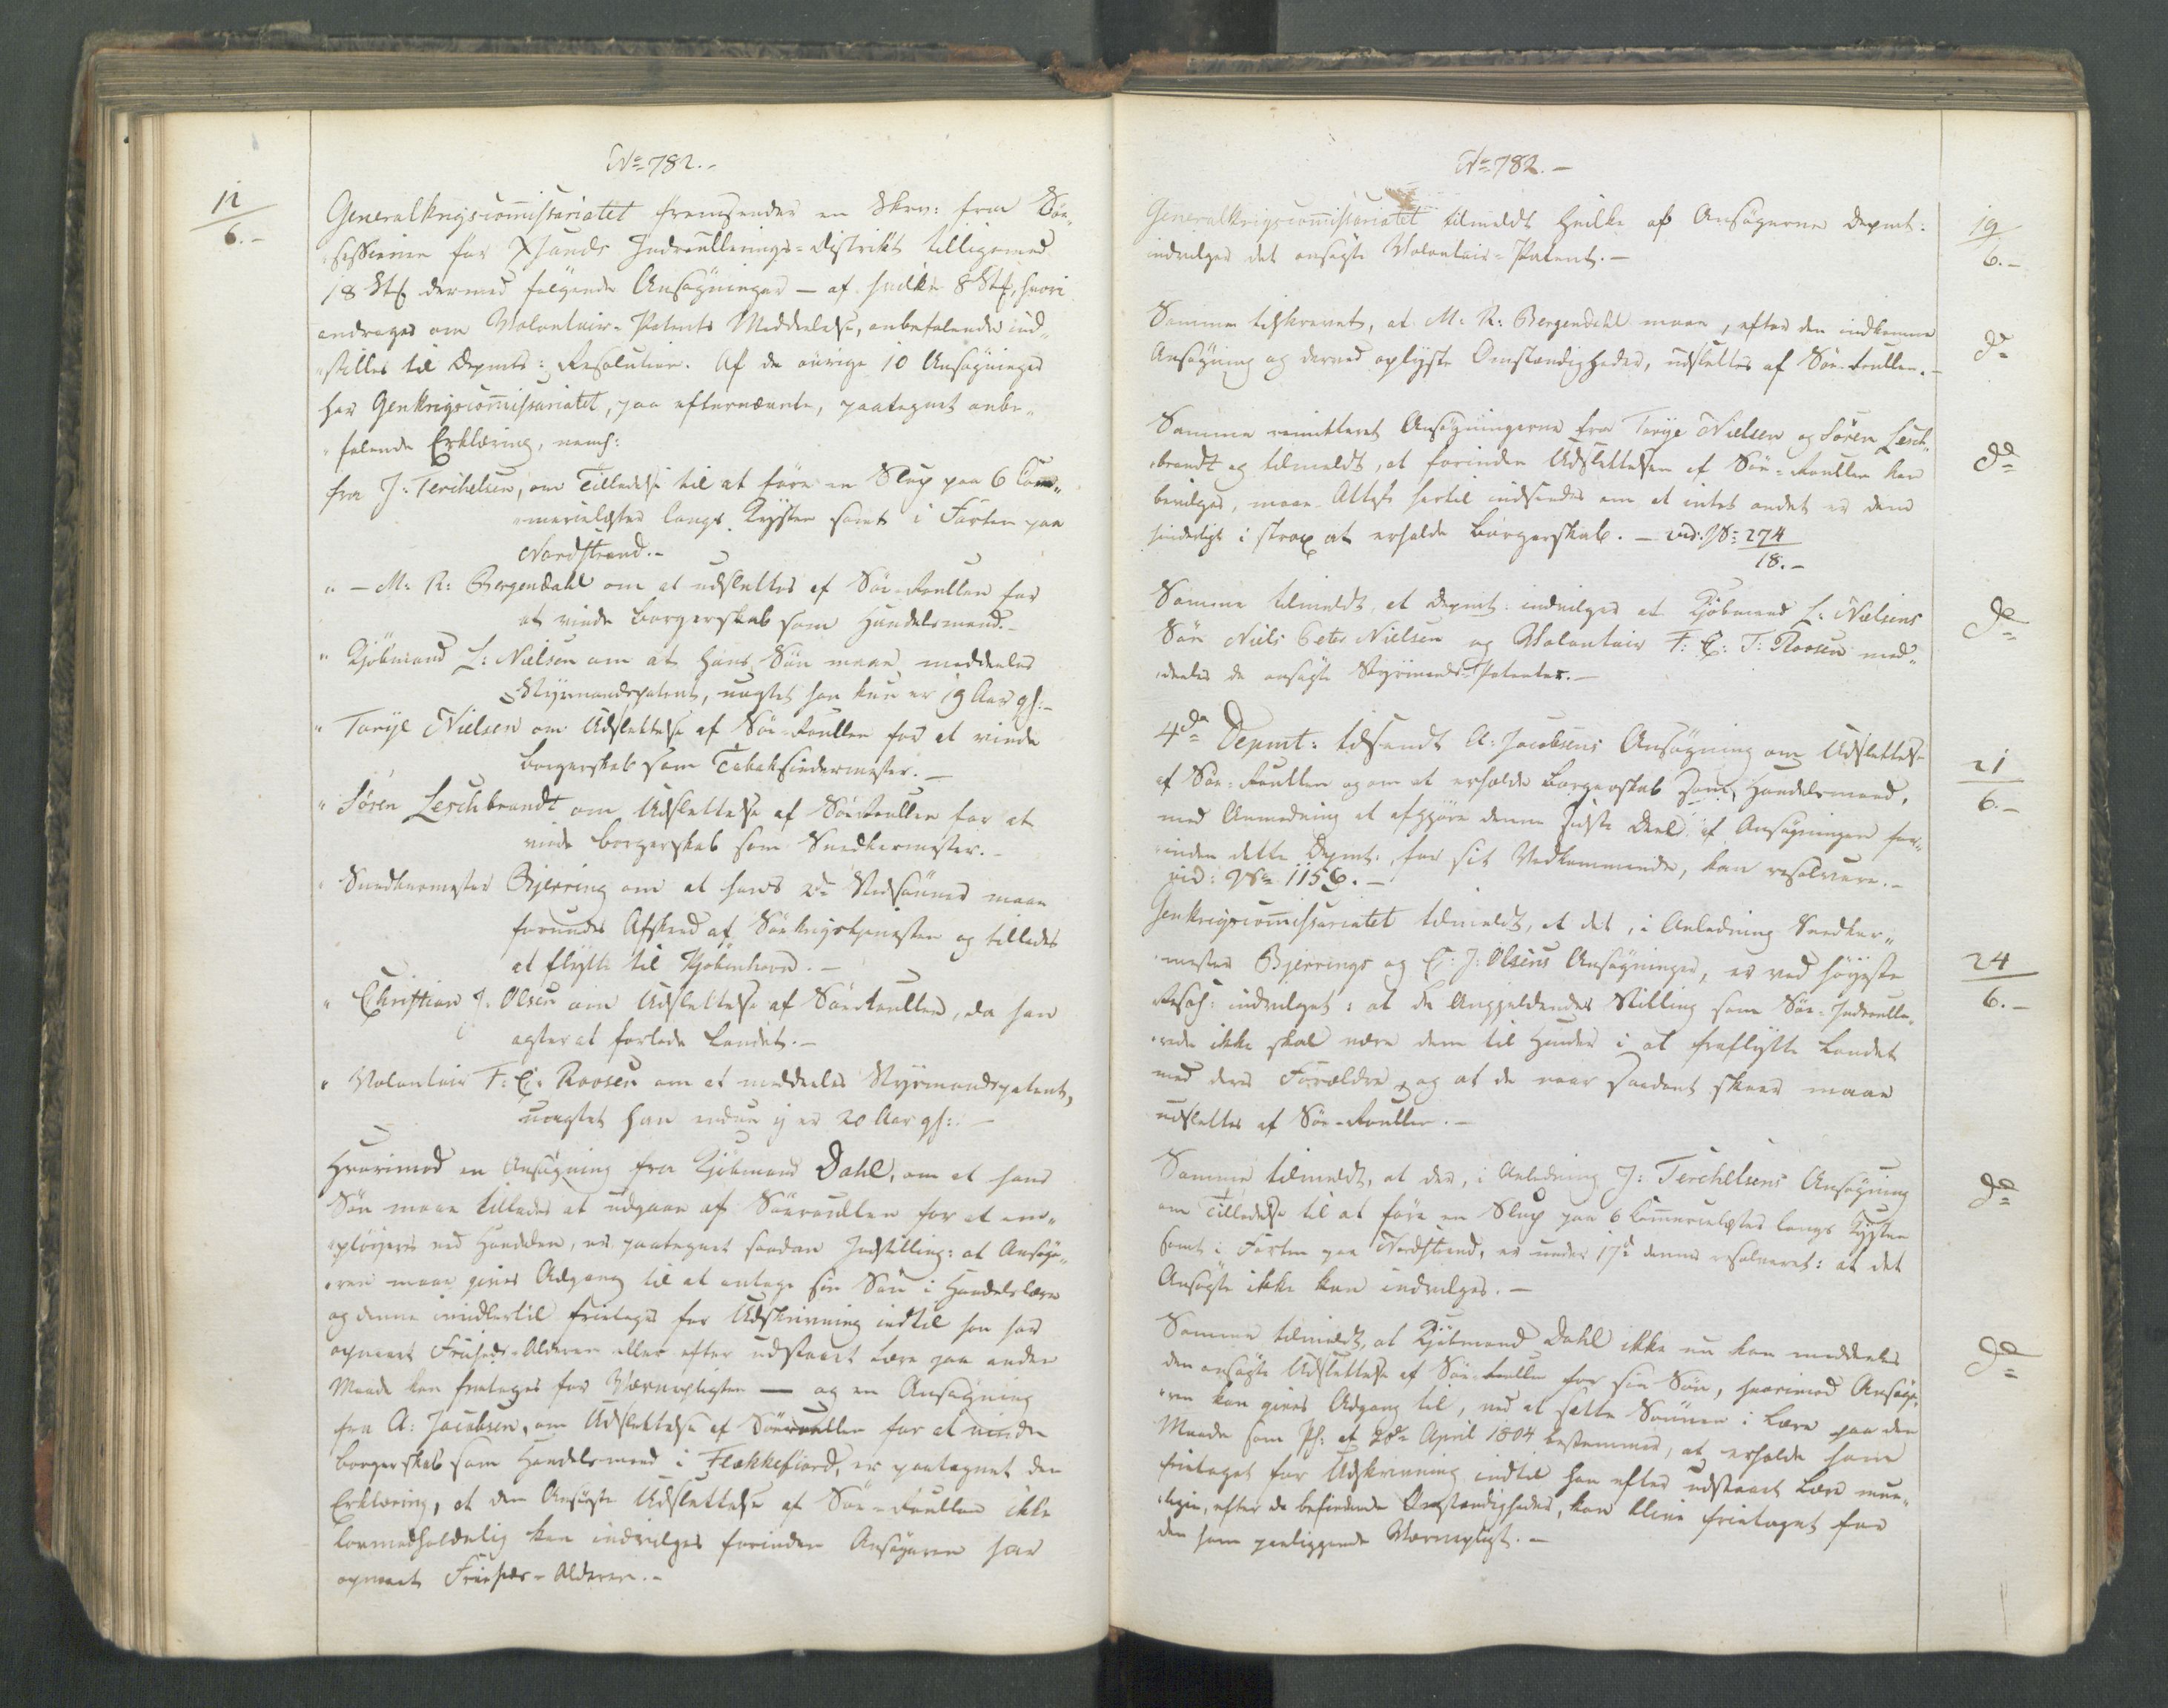 No 782.-
12/6.-
Generalkrigscommissariatet fremsender en Skrv: fra Söe-
sessionen for Xsands Indroullerings-District tilligemed
18 Stk dermed fölgende Ansögninger — af hvilke 8 Stk, hvori
andrages om Volontair-Patents Meddelelse, anbefalende ind-
stilles til Depmts: Resolution. Af de övrige 10 Ansögninger
har Genkrigscommissariatet, paa efternævnte, paategnet anbe-
falende Erklæring, neml:
fra J: Terchelsen, om Tilladelse til at före en Slup paa 6 Com-
mercelæster langs Kysten samt i Farten paa
Nordstrand.-
" — M: R: Bergendahl om at udslettes af Söe-Roullen for
at vinde Borgerskab som Handelsmand.-
" Kjöbmand L: Nielsen om at hans Sön maae meddeles
Styrmandspatent, uagtet han kun er 19 Aar gl:-
" Tarije Nielsen om Udslettelse af Söe-Roullen for at vinde
Borgerskab som Tobaksspindermester.-
" Sören Leschbrandt om Udslettelse af SöeRoullen for at
vinde Borgerskab som Snedkermester.-
" Snedkermester Bjerring om at hans 2de Stedsönner maae
forundes Afsked af Söekrigstjenesten og tillades
at flytte til Kjöbenhavn.-
" Christian J: Olsen om Udslettelse af SöeRoullen, da han
agter at forlade Landet.-
" Volontair F: C: Roosen om at meddeles Styrmandspatent,
uagtet han endnu ej er 20 Aar gl:.-
Hvorimod en Ansögning fra Kjöbmand Dahl, om at hans
Sön maae tillades at udgaae af Söeroullen for at em-
ployeres ved Handelen, er paategnet saadan Indstilling: at Ansöge-
ren maae gives Adgang til at antage sin Sön i Handelslære
og denne imidlertid fritages for Udskrivning indtil han har
opnaaet Friheds-Alderen eller efter udstaaet Lære paa anden
Maade kan fritages for Værnepligten — og en Ansögning
fra A: Jacobsen, om Udslettelse af Söeroullen for at vinde
Borgerskab som Handelsmand i Flekkefiord, er paategnet den
Erklæring, at den Ansögte Udslettelse af Söe-Roullen ikke
lovmedholdelig kan indvilges forinden Ansögeren har
opnaaet Friheds-Alderen.-
No 782.-
Generalkrigscommissariatet tilmeldt hvilke af Ansögerne Depmt:
indvilger det ansögte Volontair-Patent.-
19/6.-
Samme tilskrevet, at M: R: Bergendahl maae, efter den indkomne
Ansögning og derved oplyste Omstændigheder, udslettes af Söe-Roullen.-
do
Samme remitteret Ansögningerne fra Tarije Nielsen og Sören Lesch-
brandt og tilmeldt, at forinden Udslettelsen af Söe-Roullen kan
bevilges, maae Attest hertil indsendes om at intet andet er dem
hinderligt i strax at erholde Borgerskab. — vid: No 274/18.-
do
Samme tilmeldt, at Depmt: indvilger at Kjöbmand L: Nielsens
Sön Niels Peter Nielsen og Volontair F: C: T: Roosen med-
deeles de ansögte Styrmands-Patenter.-
do
4de Depmt: tilsendt A: Jacobsens Ansögning om Udslettelse
af Söe-Roullen og om at erholde Borgerskab som Handelsmand,
med Anmodning at afgjöre denne sidste Deel af Ansögningen for-
inden dette Depmt: for sit Vedkommende, kan resolvere.-
vid: No 1156.-
21/6.-
Genkrigscommissariatet tilmeldt, at det, i Anledning Snedker-
mester Bjerrings og C: J: Olsens Ansögninger, er ved höjeste
Resol: indvilget: at de Angjeldendes Stilling som Söe-Indroulle-
rede ikke skal være dem til Hinder i at fraflytte Landet
med deres Forældre, og at de naar saadant skeer maae
udslettes af Söe-Roullen.-
24/6.-
Samme tilmeldt, at der, i Anledning J: Terchelsens Ansögning
om Tilladelse til at före en Slup paa 6 Commercelæster langs Kysten
samt i Farten paa Nordstrand, er under 17d dennes resolveret: at det
Ansögte ikke kan indvilges.-
do
Samme tilmeldt, at Kjöbmand Dahl ikke nu kan meddeles
den ansögte Udslettelse af Söe-Roullen for sin Sön, hvorimod Ansöge-
ren kan gives Adgang til, ved at sætte Sönnen i Lære paa den
Maade som Pl: af April 1804 bestemmer, at erholde ham
fritaget for Udskrivning indtil han efter udstaaet Lære mue-
ligen, efter de befindende Omstændigheder, kan blive fritaget for
den ham paaliggende Værnepligt.-
do